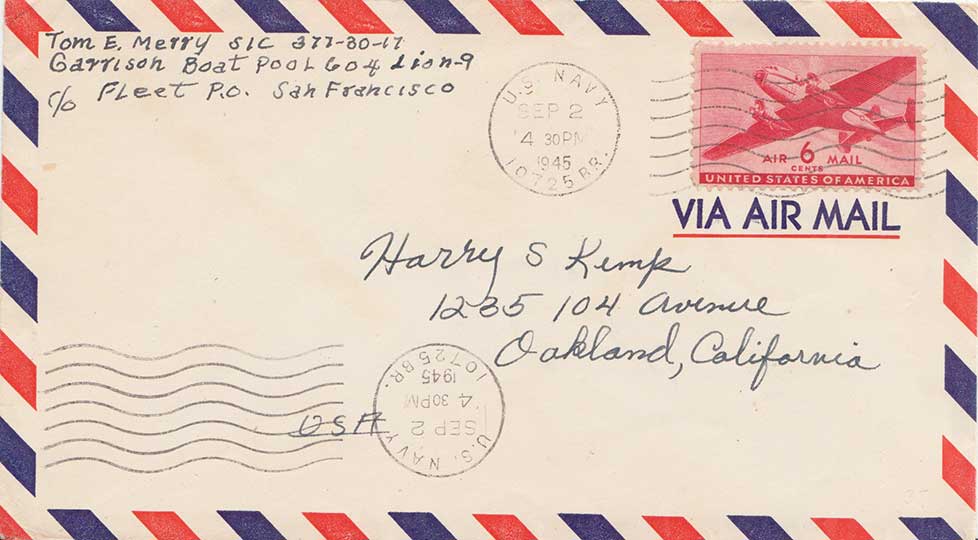 Tom E. Merry S1C 377-30-17
Garrison Boat Pool 604 Lion-9
c/o Fleet P.O. San Francisco
U.S. NAVY
SEP 2
4 30PM
1945
10725 BR.
AIR 6 MAIL
CENTS
UNITED STATES OF AMERICA
VIA AIR MAIL
Harry S Kemp
1235 104 Avenue
Oakland, California
U.S. NAVY
SEP 2
4 30PM
1945
10725 BR.
USA